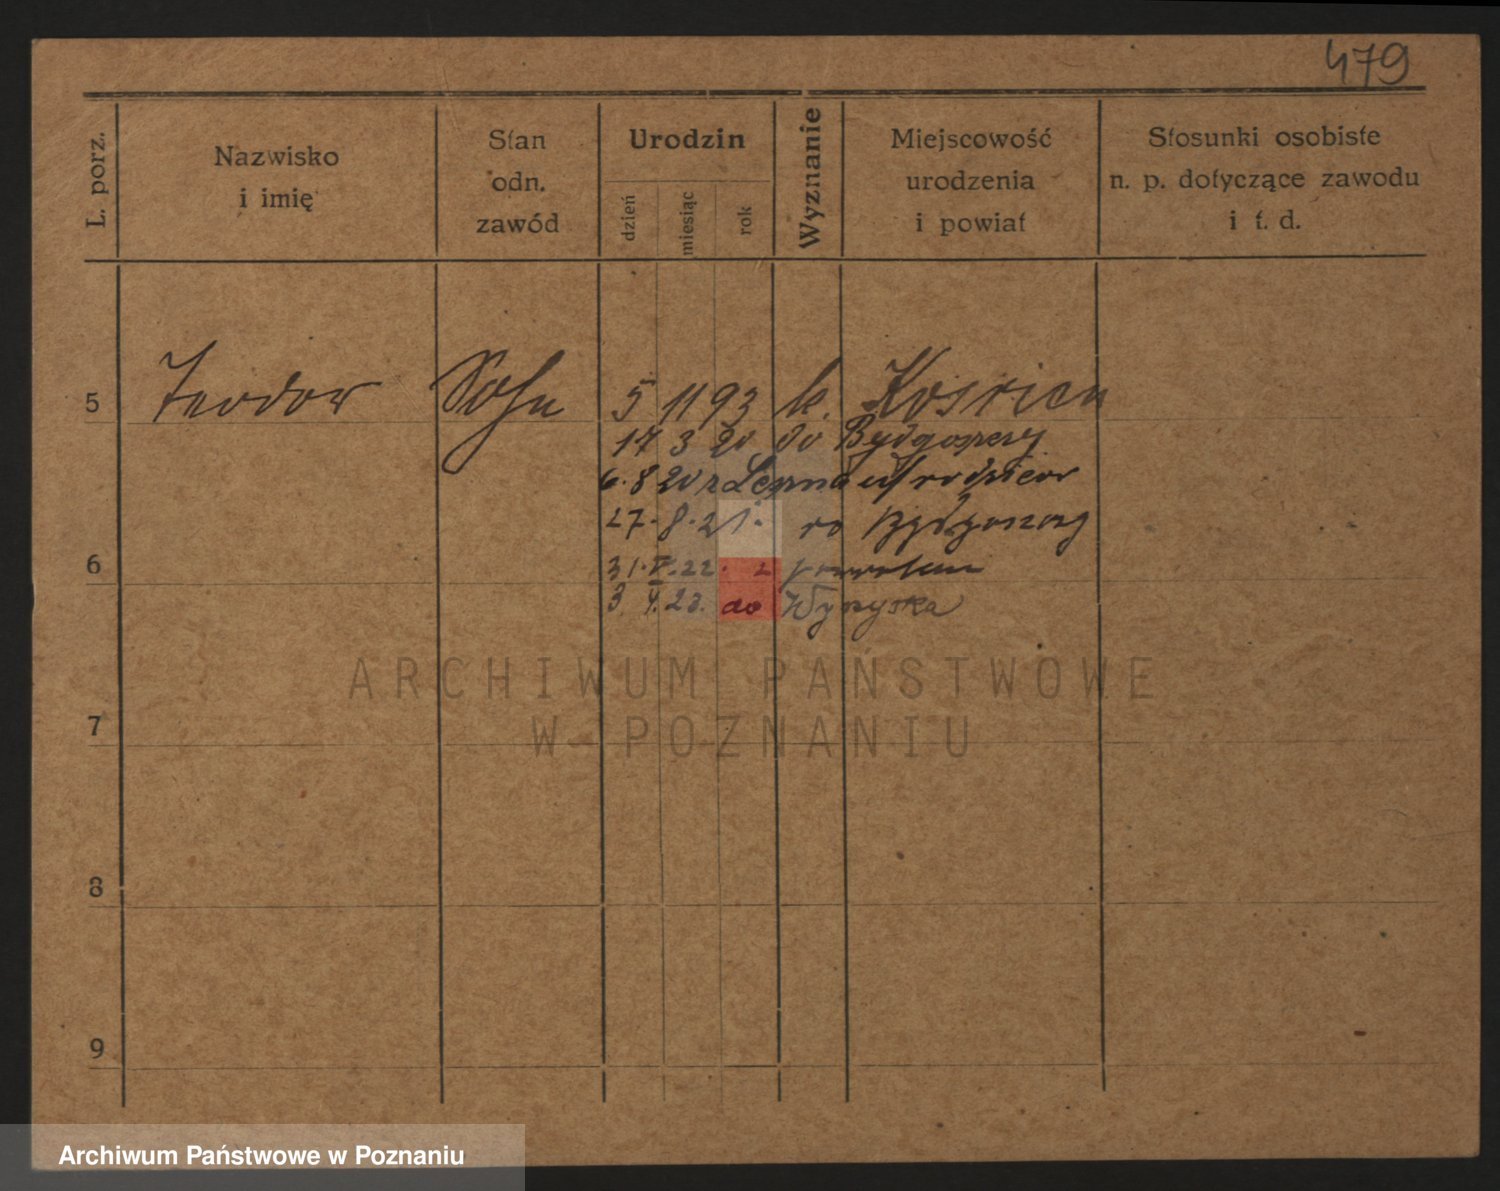 479
L. porz.
Nazwisko
i imię
Stan
odn.
zawód
Urodzin
dzień
miesiąc
rok
Wyznanie
Miejscowość
urodzenia
i powiat
Stosunki osobiste
n. p. dotyczące zawodu
i t. d.
5 Teodor Sohn 5 11 93 k.
17 3 20 do Bydgoszczy
6. 8 20 z rodziców
27. 8. 21.
6
31. 22. z powrotem
3 do Wyrzyska
ARCHIWUM PAŃSTWOWE
W POZNANIU
7
8
9
Archiwum Państwowe w Poznaniu